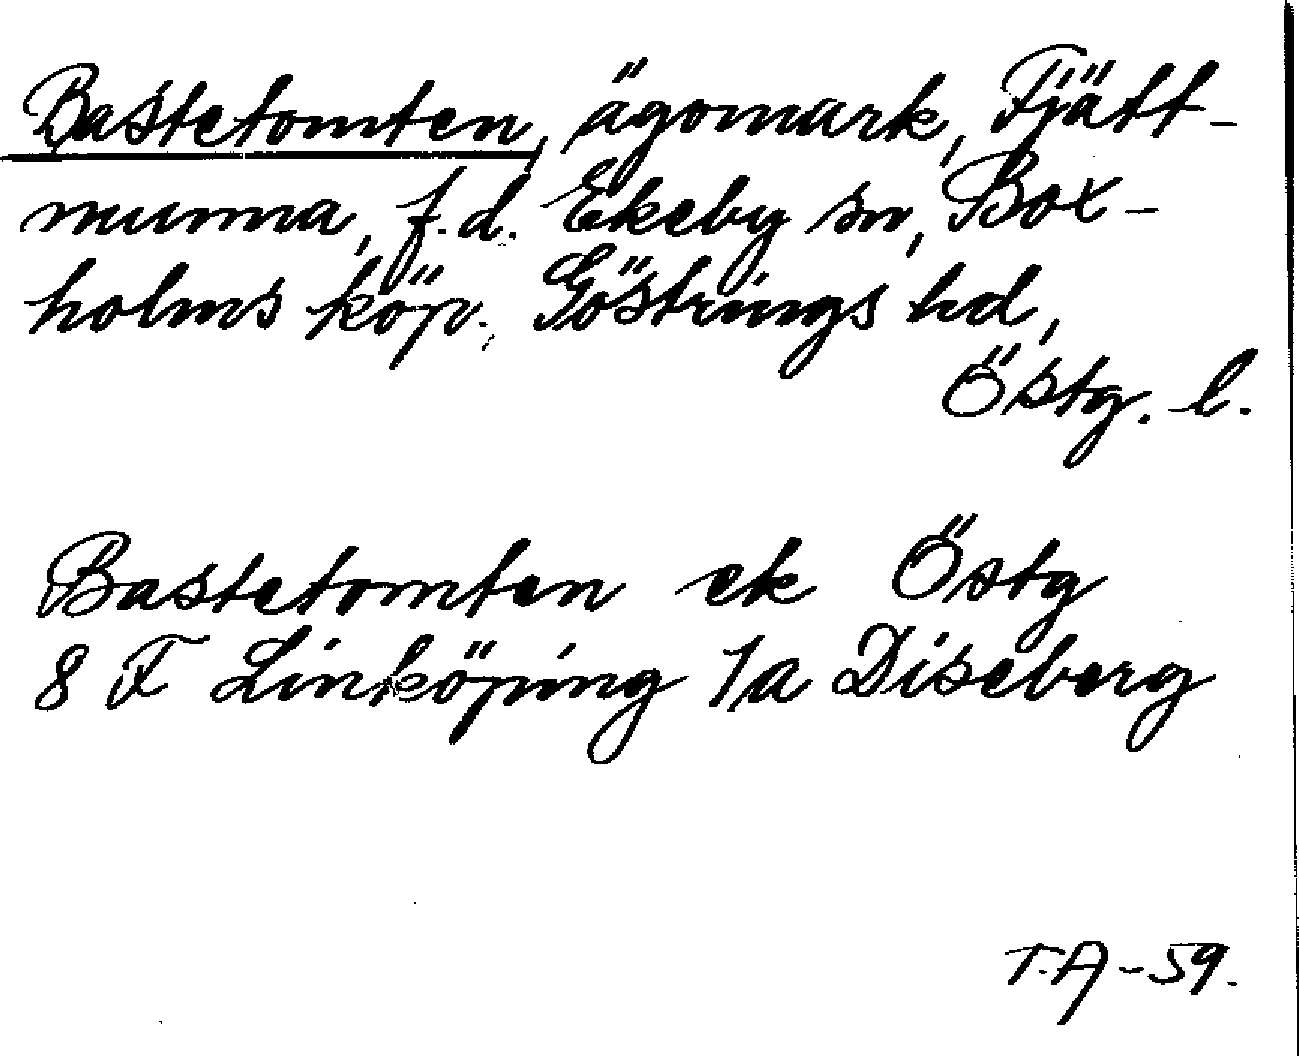 Bastetomten, ägomark, Fjätt-
munna, f.d. Ekeby sn, Box-
holms köp., Göstrings hd,
Östg. l.
Bastetomten ek Östg
8 F Linköping 1a Diseberg
T.A-59.